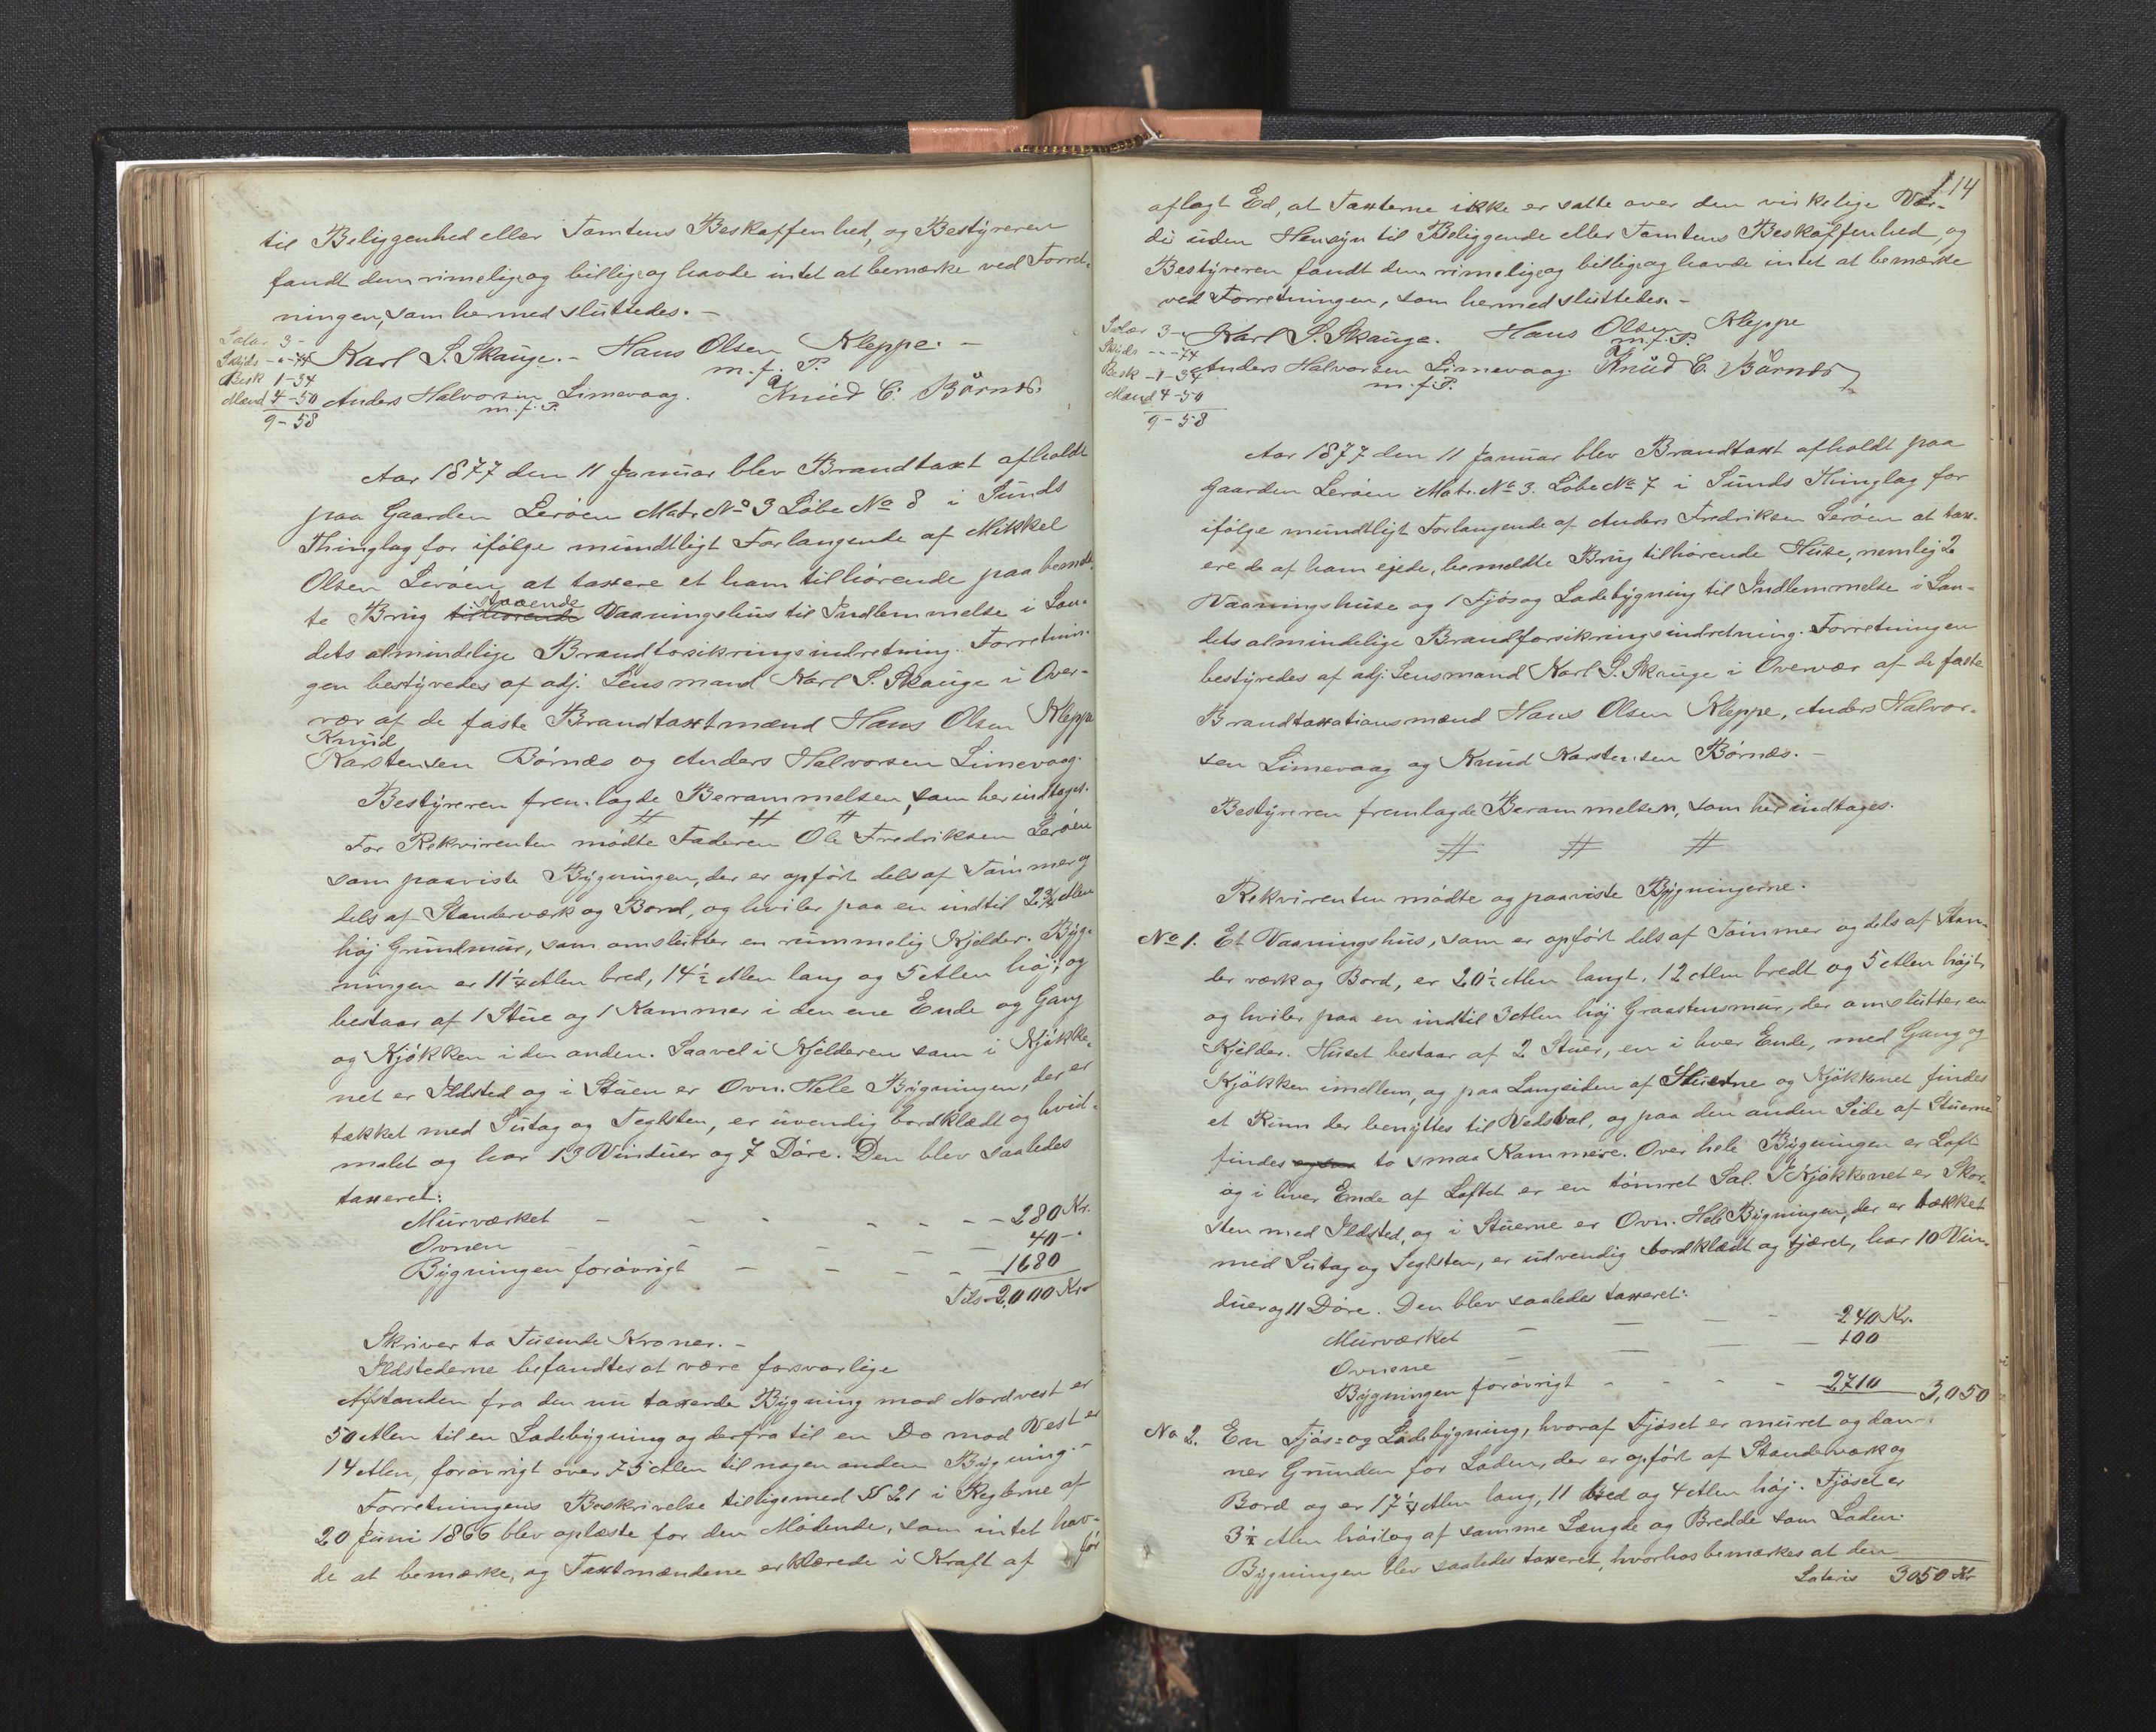 til Beliggenhed eller Tomtens Beskaffenhed, og Bestyreren
fandt dem rimelige og billige og havde intet at bemærke ved Forret-
ningen, som hermed sluttedes. –
Salær 3 -
Skyds - „ - 74
Besk 1 - 34
Mænd 4 - 50
9 - 58
Karl S. Skauge. – Hans Olsen Kleppe. –
m. f. P.
Anders Halvorsen Limevaag. Knud C. Börnes.
m. f. P.
Aar 1877 den 11 Januar blev Brandtaxt afholdt
paa Gaarden Lerøen Matr. No 3 Löbe No 8 i Sunds
Thinglag for ifølge mundtligt Forlangende af Mikkel
Olsen Lerøen at taxere et ham tilhørende paa bemeld-
te Brug tilhørende staaende Vaaningshus til Indlemmelse i Lan-
dets almindelige Brandforsikringsindretning. Forretnin-
gen bestyredes af adj. Lensmand Karl S. Skauge i Over-
vær af de faste Brandtaxtmænd Hans Olsen Kleppe
Knud
Karstensen Börnæs og Anders Halvorsen Limevaag.
Bestyreren fremlagde Berammelsen, som her indtages.
# # #
For Rekvirenten mødte Faderen Ole Fredriksen Lerøen
som paaviste Bygningen, der er opført dels af Tømmer og
dels af Standerværk og Bord, og hviler paa en indtil 2 3/4 Alen
høj Grundmur, som omslutter en rummelig Kjelder. Byg-
ningen er 11 1/4 Alen bred, 14 1/2 Alen lang og 5 Alen høj, og
bestaar af 1 Stue og 1 Kammer i den ene Ende og Gang
og Kjøkken i den anden. Saavel i Kjelderen som i Kjøkke-
net er Ildsted og i Stuen er Ovn. Hele Bygningen, der er
tækket med Sutag og Teglsten, er uvendig bordklædt og hvid-
malet og har 13 Vinduer og 7 Døre. Den blev saaledes
taxeret:
Murværket – – – – – – – 280 Kr.
Ovnen – – – – – – 40 –
Bygningen forøvrigt – – – – 1680
Tils. 2,000 Kr
Skriver to Tusende Kroner. –
Ildstederne befandtes at være forsvarlige
Afstanden fra den nu taxerede Bygning mod Nordvest er
50 Alen til en Ladebygning og derfra til en Do mod Vest er
14 Alen, forøvrigt over 75 Alen til nogen anden Bygning. –
Forretningens Beskrivelse tilligemed § 21 i Reglerne af
20 Juni 1866 blev oplæste for den Mødende, som intet hav-
de at bemærke, og Taxtmændene erklærede i Kraft af før
114
aflagt Ed, at Taxterne ikke er satte over den virkelige Vær-
di uden Hensyn til Beliggende eller Tomtens Beskaffenhed, og
Bestyreren fandt dem rimelige og billige og havde intet at bemærke
ved Forretningen, som hermed sluttedes. –
Salær 3 -
Skyds - „ - 74
Besk - 1 - 34
Mænd 4 - 50
9 - 58
Karl S. Skauge. Hans Olsen Kleppe
m. f. P.
Anders Halvorsen Limevaag. Knud C. Börnes
m. f. P.
Aar 1877 den 11 Januar blev Brandtaxt afholdt paa
Gaarden Lerøen Matr. No 3. Löbe No 7 i Sunds Thinglag for
ifølge mundtligt Forlangende af Anders Fredriksen Lerøen at tax-
ere de af ham ejede, bemeldte Brug tilhørende Huse, nemlig 2
Vaaningshuse og 1 Fjøs og Ladebygning til Indlemmelse i Lan-
dets almindelige Brandforsikringsindretning. Forretningen
bestyredes af adj. Lensmand Karl S. Skauge i Overvær af de faste
Brandtaxationsmænd Hans Olsen Kleppe, Anders Halvor-
sen Limevaag og Knud Karstensen Børnæs. –
Bestyreren fremlagde Berammelsen, som her indtages.
# # #
Rekvirenten mødte og paaviste Bygningerne.
No 1. Et Vaaningshus, som er opført dels af Tømmer og dels af Stan-
derværk og Bord, er 20 1/2 Alen langt, 12 Alen bredt og 5 Alen højt,
og hviler paa en indtil 3 Alen høj Graastensmur, der omslutter en
Kjelder. Huset bestaar af 2 Stuer, en i hver Ende, med Gang og
Kjøkken imellem, og paa Langsiden af Stuerne og Kjøkkenet findes
et Rum der benyttes til Vedsval, og paa den anden Side af Stuerne
findes to smaa Kammere. Over hele Bygningen er Loft
og i hver Ende af Loftet er en tømret Sal. I Kjøkkenet er Skor-
sten med Ildsted, og i Stuerne er Ovn. Hele Bygningen, der er tækket
med Sutag og Teglsten, er udvendig bordklædt og tjæret, har 10 Vin-
duer og 11 Døre. Den blev saaledes taxeret:
Murværket – – – – 240 Kr.
Ovnene – – – – 100
Bygningen forøvrigt – – – – 2710 3,050
No 2. En Fjøs- og Ladebygning, hvoraf Fjøset er muret og dan-
ner Grunden for Laden, der er opført af Standerværk og
Bord og er 17 1/4 Alen lang, 11 bred og 4 Alen høj. Fjøset er
3 1/2 Alen højt og af samme Længde og Bredde som Laden.
Bygningen blev saaledes taxeret, hvorhos bemærkes at den
Lateris 3050 Kr